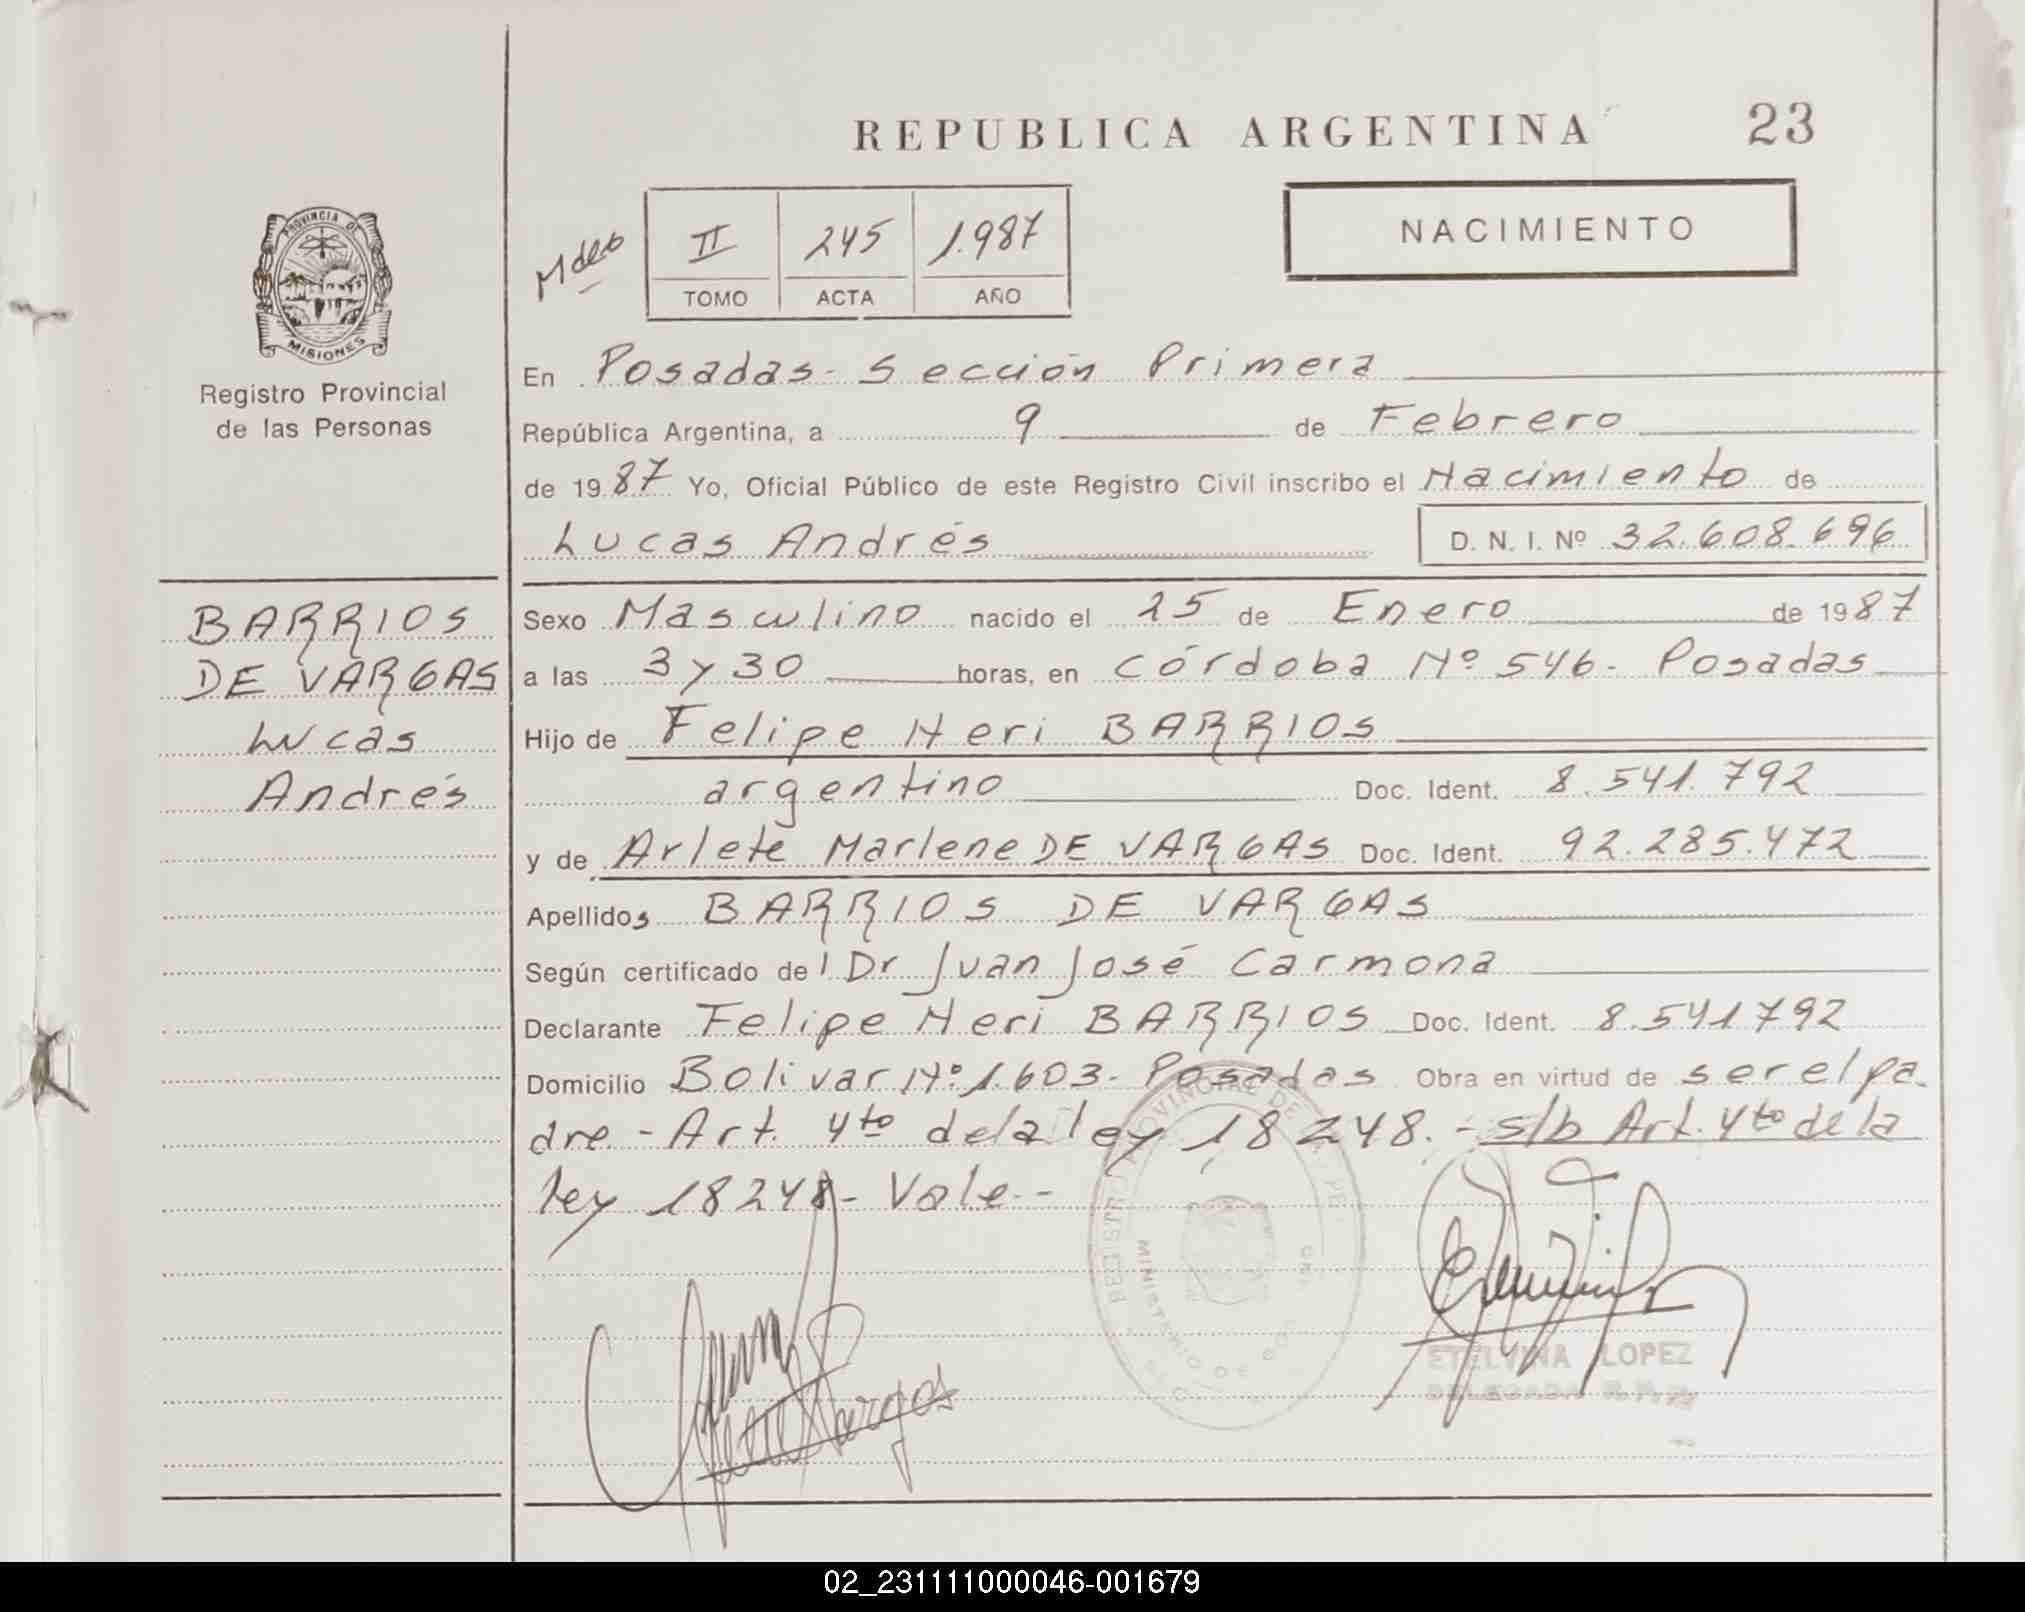 REPUBLICA ARGENTINA 23
NACIMIENTO
II 245 1.987
TOMO ACTA AÑO
PROVINCIA DE
MISIONES
Registro Provincial
de las Personas
En Posadas - Sección Primera
República Argentina, a 9 de Febrero
de 1987 Yo, Oficial Público de este Registro Civil inscribo el Nacimiento de
Lucas Andrés D. N. I. Nº 32.608.696
BARRIOS
DE VARGAS
Lucas
Andrés
Sexo Masculino nacido el 25 de Enero de 1987
a las 3 y 30 horas, en Córdoba Nº 546 - Posadas
Hijo de Felipe Neri BARRIOS
argentino Doc. Ident. 8.541.792
y de Arlete Marlene DE VARGAS Doc. Ident. 92.285.472
Apellidos BARRIOS DE VARGAS
Según certificado del Dr Juan José Carmona
Declarante Felipe Neri BARRIOS Doc. Ident. 8.541792
Domicilio Bolivar Nº 1.603 - Posadas Obra en virtud de ser el pa-
dre - Art. 4to de la ley 18248. - s/b Art. 4to de la
ley 18248 - Vale -
REGISTRO PROVINCIAL DE LAS PE
MINISTERIO DE GO
ETELVINA LOPEZ
DELEGADA
Vargas
02_231111000046-001679